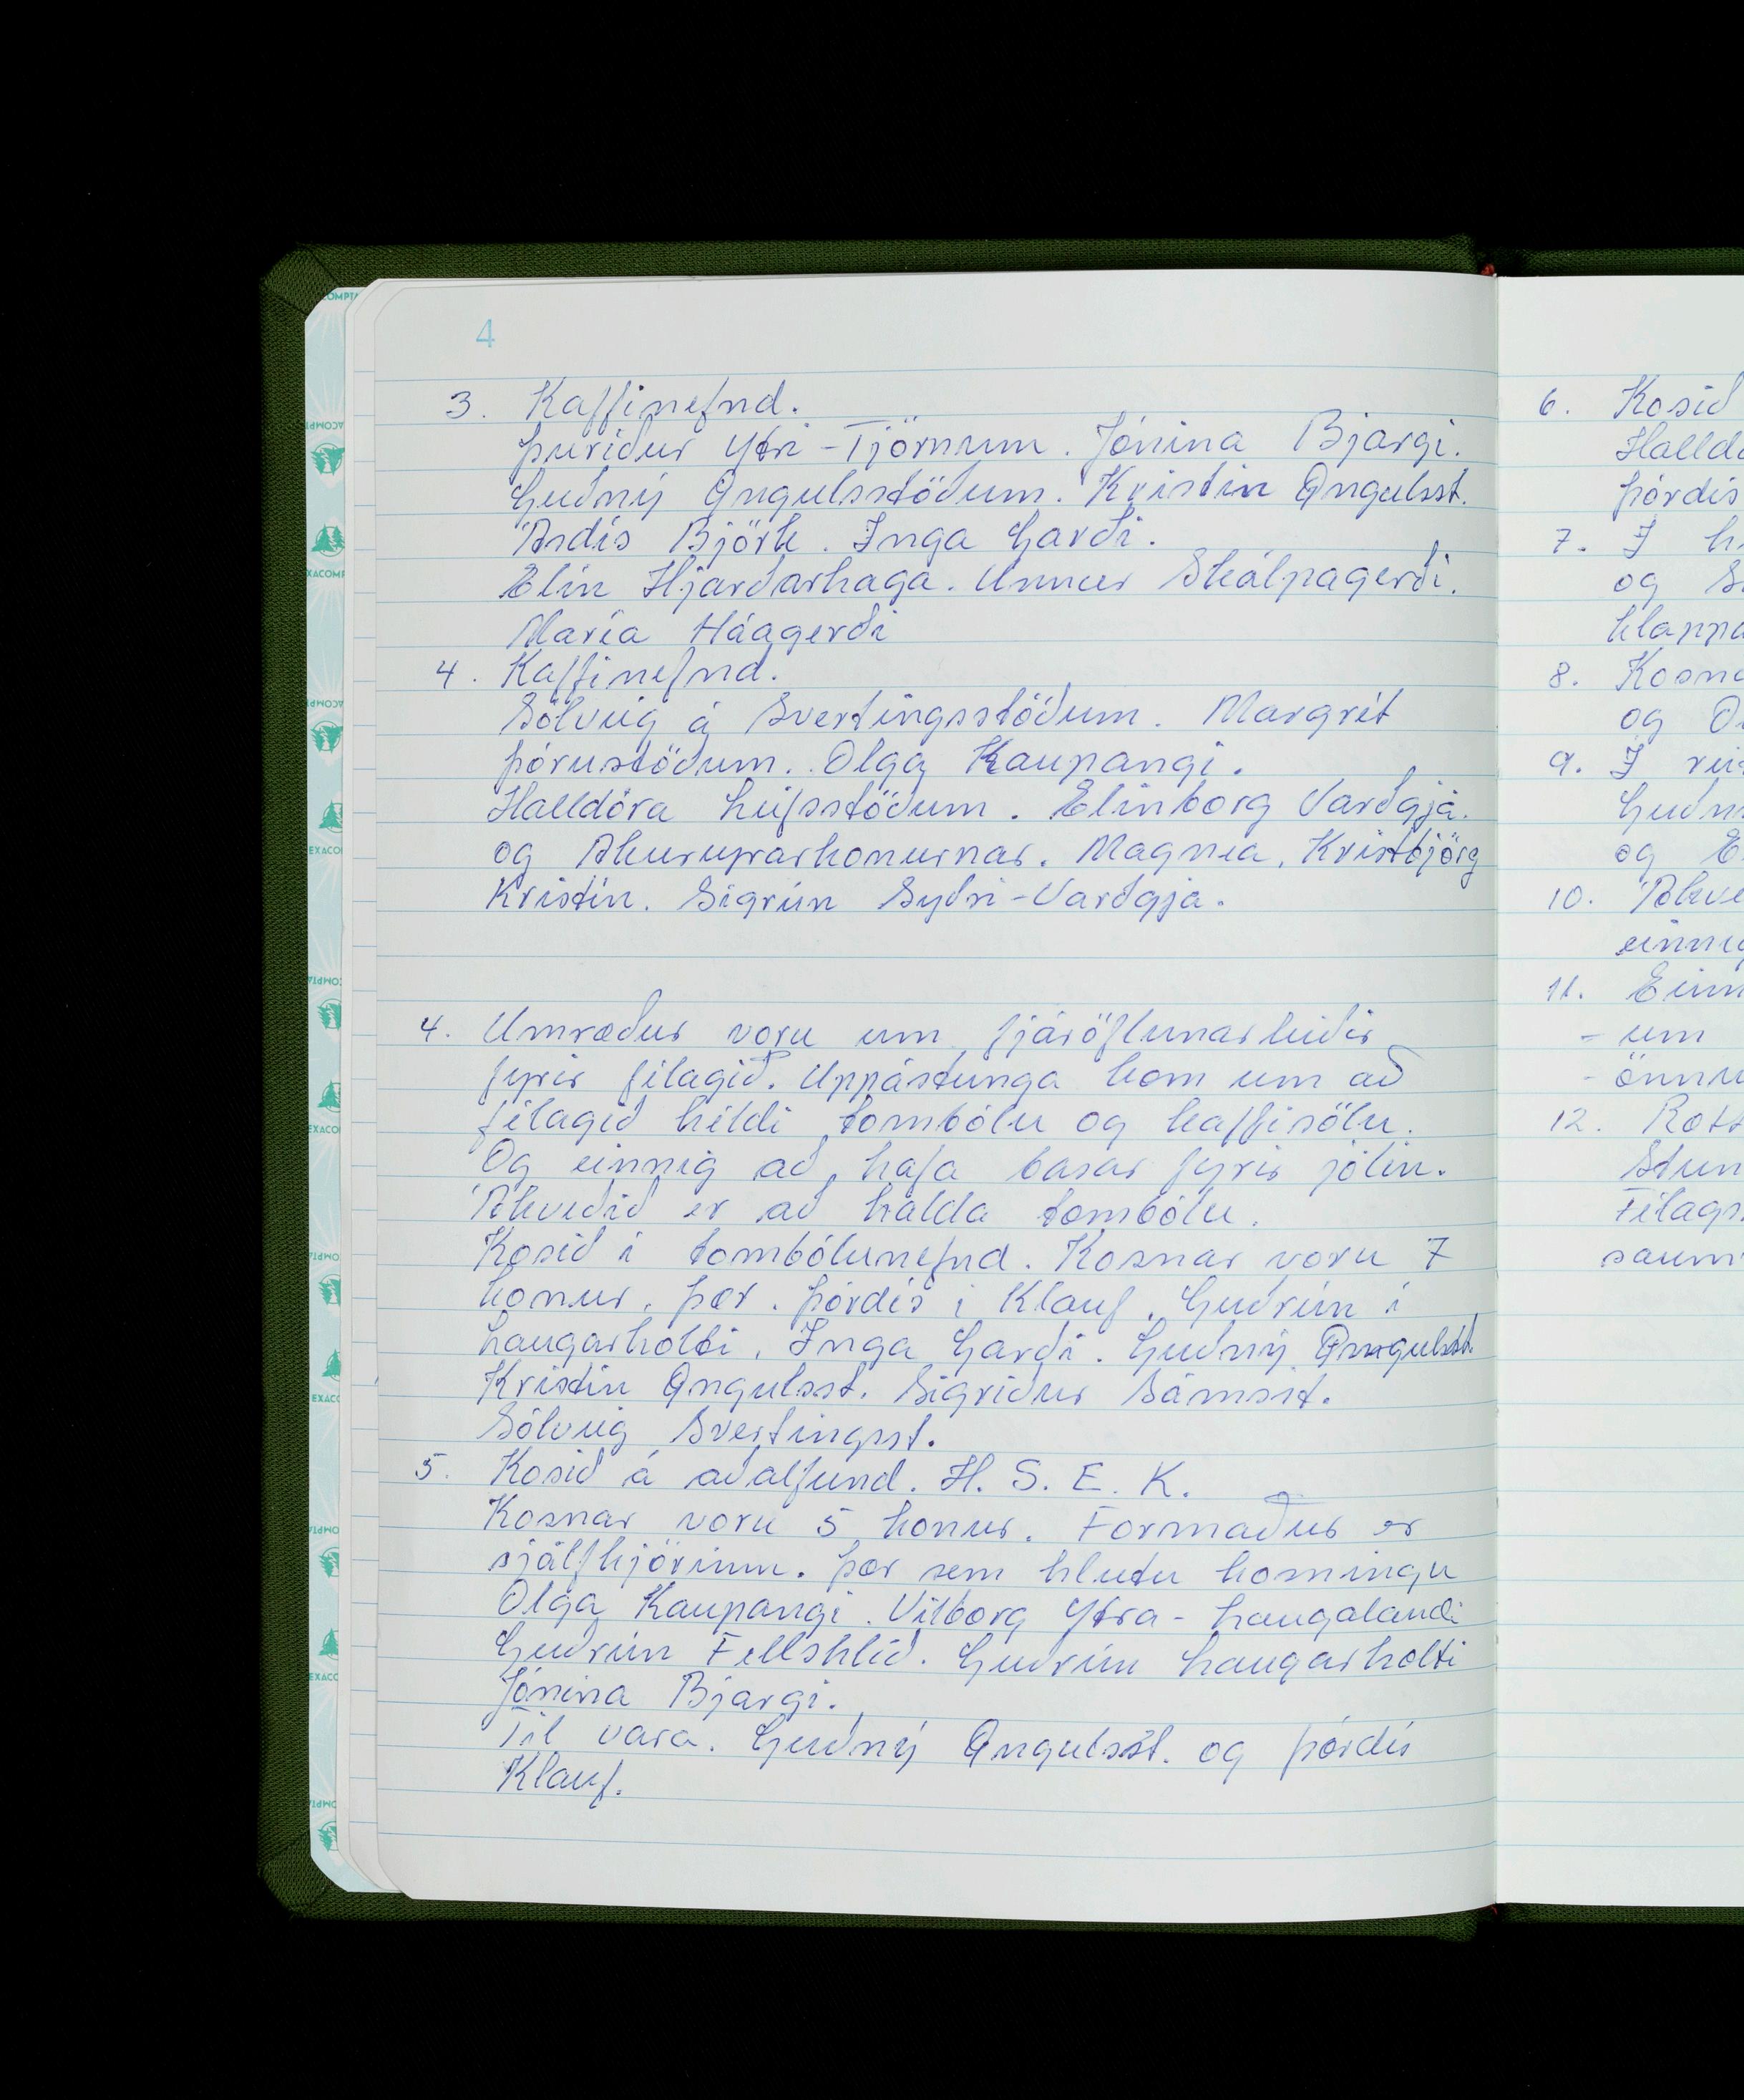 4
3. Kaffinefnd.
Þuríður Ytri-Tjörnum. Jónína Bjargi.
Guðný Öngulsstöðum. Kristín Öngulsst.
Ásdís Björk. Inga Garði.
Elín Hjarðarhaga. Unnur Skálpagerði.
María Háagerði
4. Kaffinefnd.
Sólveig á Svertingsstöðum. Margrét
Þórustöðum. Olga Kaupangi.
Halldóra Leifsstöðum. Elínborg Varðgjá.
og Akureyrarkonurnar. Magnea, Kristbjörg
Kristín. Sigrún Syðri-Varðgjá.
4. Umræður voru um fjáröflunarleiðir
fyrir félagið. Uppástunga kom um að
félagið héldi tombólu og kaffisölu.
Og einnig að hafa basar fyrir jólin.
Ákveðið er að halda tombólu.
Kosið í tombólunefnd. Kosnar voru 7
konur. þær. Þórdís í Klauf. Guðrún í
Laugarholti. Inga Garði. Guðný Öngulsst.
Kristín Öngulsst. Sigríður Sámsst.
Sólveig Svertingsst.
5. Kosið á aðalfund. H. S. E. K.
Kosnar voru 5 konur. Formaður er
sjálfkjörinn. Þær sem hlutu kosningu
Olga Kaupangi. Vilborg Ytra-Laugalandi
Guðrún Fellshlíð. Guðrún Laugarholti
Jónína Bjargi.
Til vara. Guðný Öngulsst. og Þórdís
Klauf.
6. Kosið
Þórdís
7. Í
og
8.
og
9. Í
og
10.
11.
- um
12.